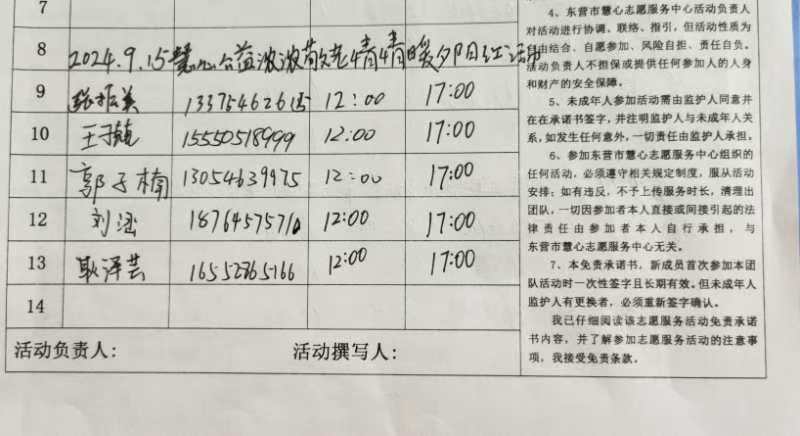 7
8 2024.9.15慧心公益浓浓敬老情情暖夕阳红活动
9 张振美 12:00 17:00
10 15550518999 12:00 17:00
11 郭子楠 13054639975 12:00 17:00
12 刘涵 18764575710 12:00 17:00
13 耿泽芸 16552865166 12:00 17:00
14
活动负责人： 活动撰写人：
4、东营市慧心志愿服务中心活动负责人
对活动进行协调、联络、指引，但活动性质为
自由结合、自愿参加、风险自担、责任自负。
活动负责人不担保或提供任何参加人的人身
和财产的安全保障。
5、未成年人参加活动需由监护人同意并
在在承诺书签字，并注明监护人与未成年人关
系，如发生任何意外，一切责任由监护人承担。
6、参加东营市慧心志愿服务中心组织的
任何活动，必须遵守相关规定制度，服从活动
安排；如有违反，不予上传服务时长，清理出
团队，一切因参加者本人直接或间接引起的法
律责任由参加者本人自行承担，与
东营市慧心志愿服务中心无关。
7、本免责承诺书，新成员首次参加本团
队活动时一次性签字且长期有效。但未成年人
监护人有更换者，必须重新签字确认。
我已仔细阅读该志愿服务活动免责承诺
书内容，并了解参加志愿服务活动的注意事
项，我接受免责条款。